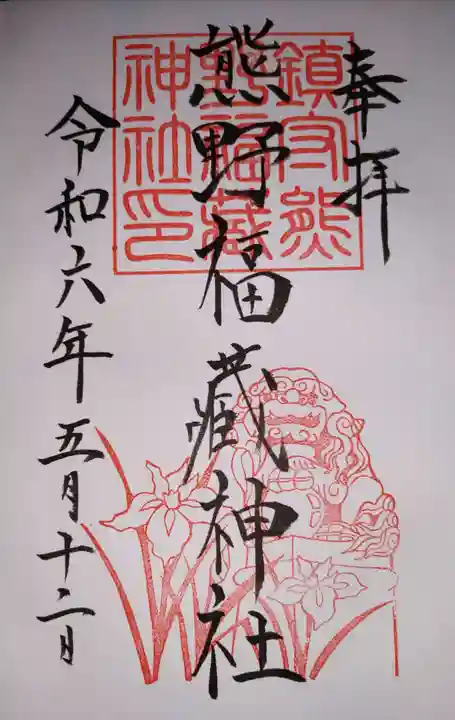 奉拝
鎮守熊
野福蔵
神社印
熊野福蔵神社
令和六年五月十二日